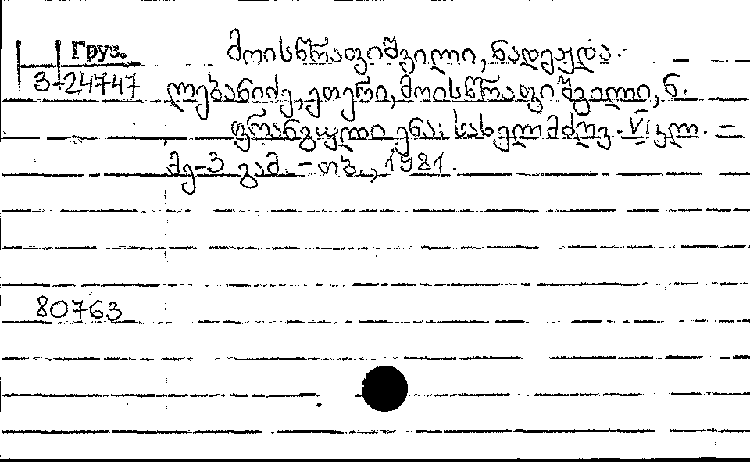 Груз.
3-24747
მოისწრაფიშვილი, ნადეჟდა.
ლებანიძე, ეთერი, მოისწრაფიშვილი, ნ.
ფრანგული ენა: სახელმძღვ. VI კლ. –
მე-3 გამ. – თბ., 1981.
80763